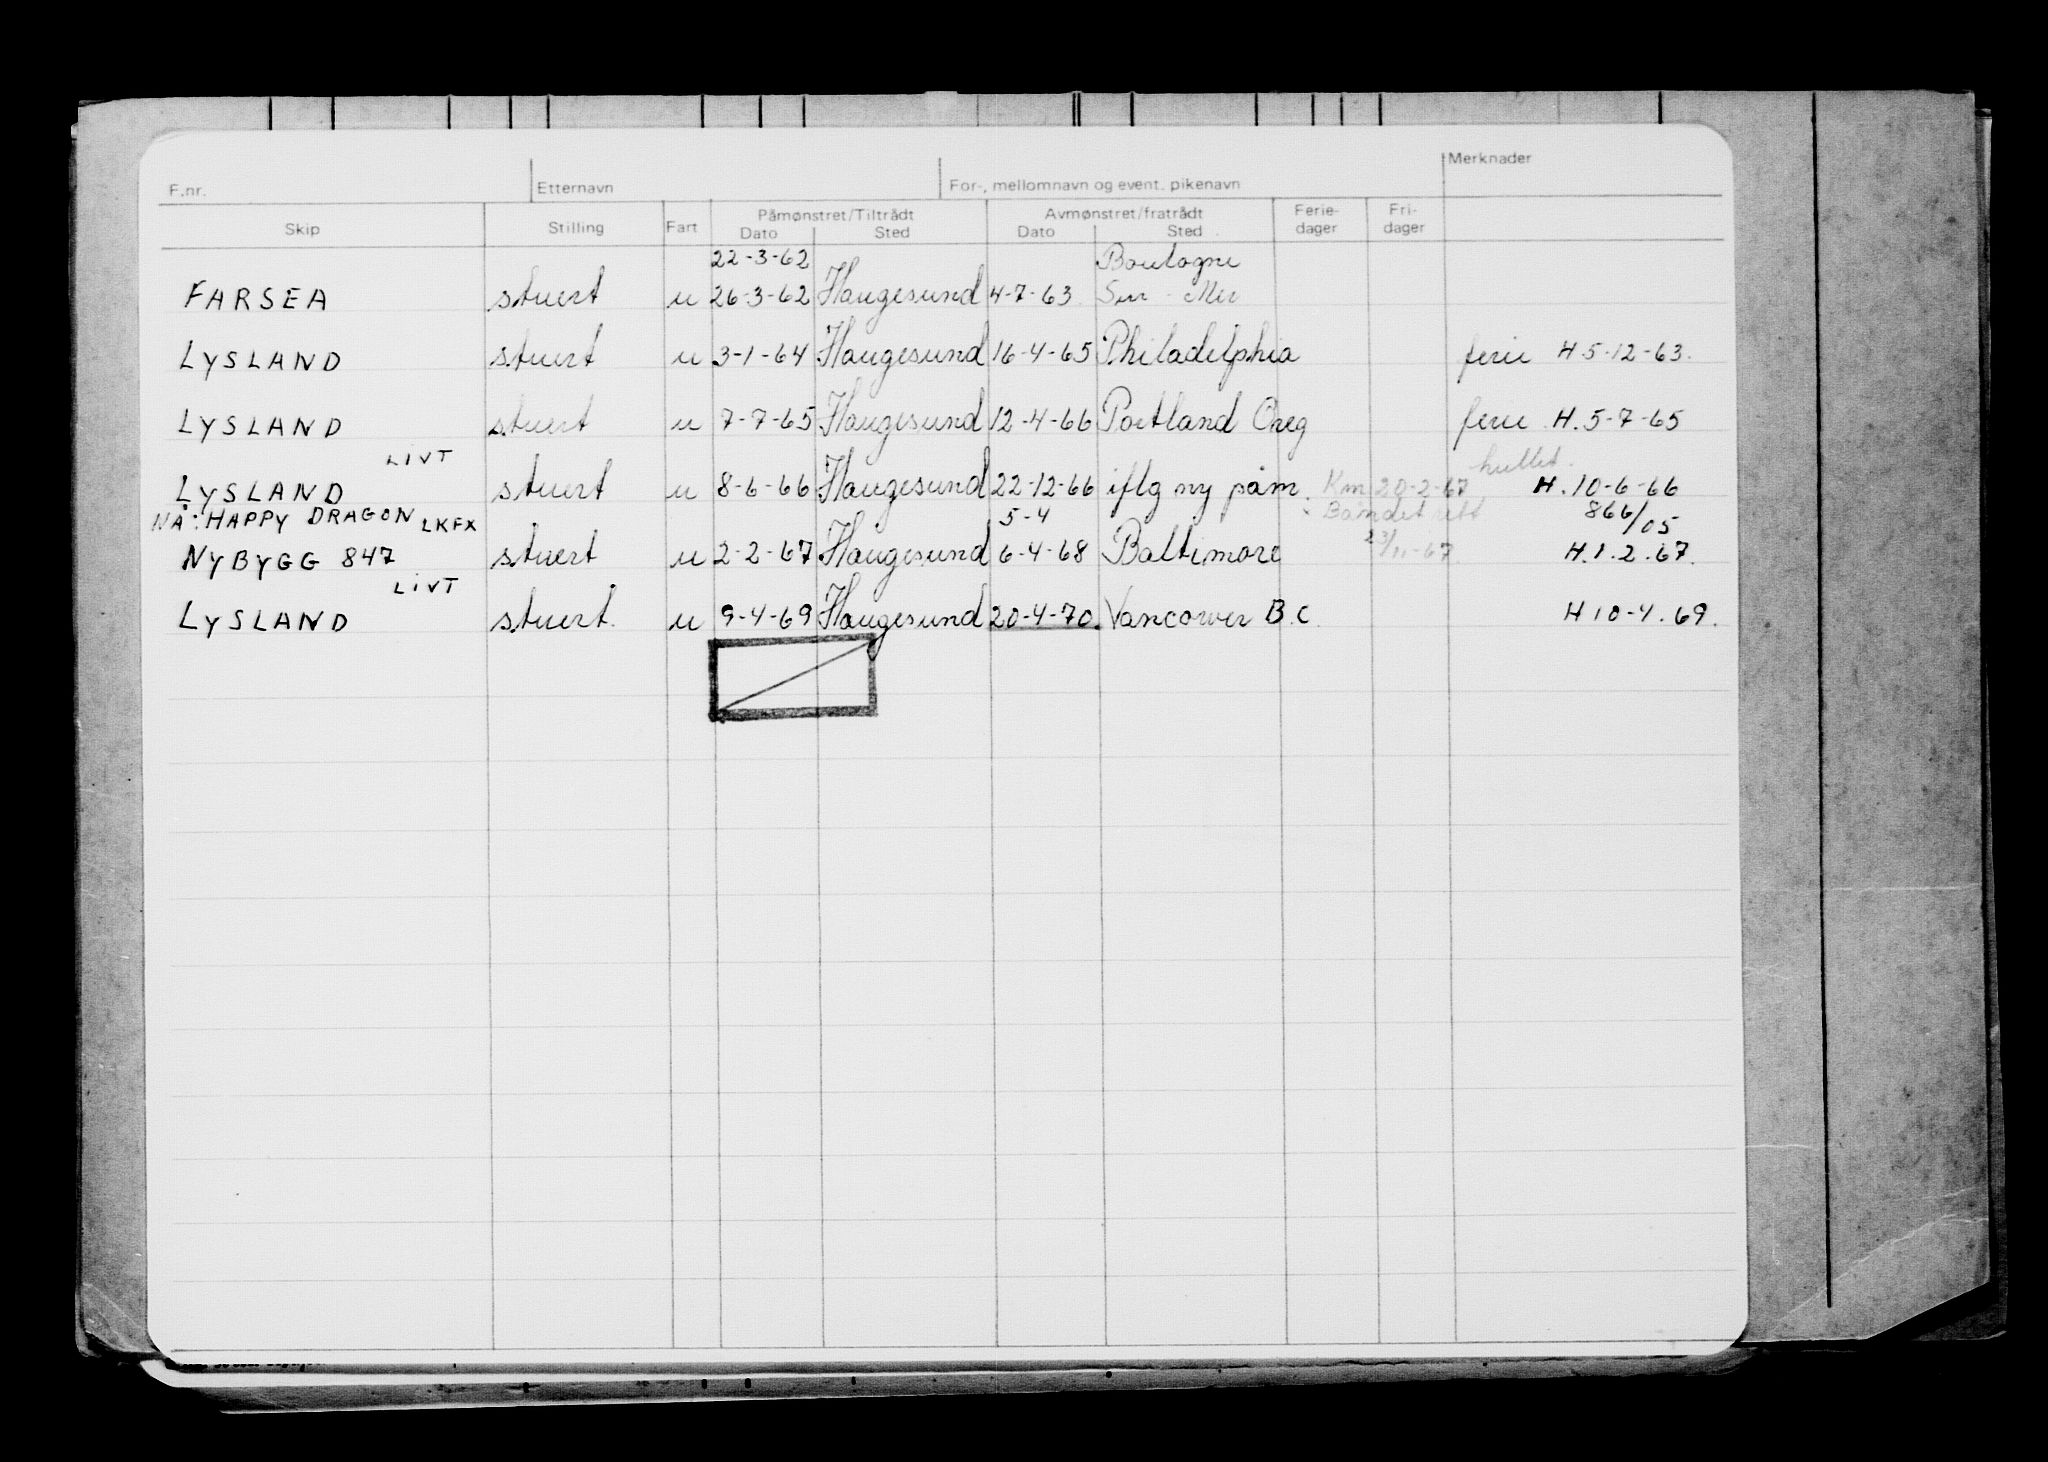 Merknader
F.nr. Etternavn For-, mellomnavn og event. pikenavn
Skip Stilling Fart Påmønstret/Tiltrådt Avmønstret/fratrådt Ferie- Fri-
Dato Sted Dato Sted dager dager
22-3-62 Boulogne
FARSEA stuert u 26-3-62 Haugesund 4-7-63 Sur - Mer
LYSLAND stuert u 3-1-64 Haugesund 16-4-65 Philadelphia ferie H.5-12-63.
LYSLAND stuert u 7-7-65 Haugesund 12-4-66 Portland Oreg ferie H.5-7-65
LIVT hullet.
LYSLAND stuert u 8-6-66 Haugesund 22-12-66 iflg ny påm. Km 20-2-67 H.10-6-66
NÅ: HAPPY DRAGON LKFX 5-4 866/05
NYBYGG 847 stuert u 2-2-67 Haugesund 6-4-68 Baltimore 23/11-67 H.1.2.67.
LIVT
LYSLAND stuert. u 9-4-69 Haugesund 20-4-70. Vancower B.C. H10-4.69.